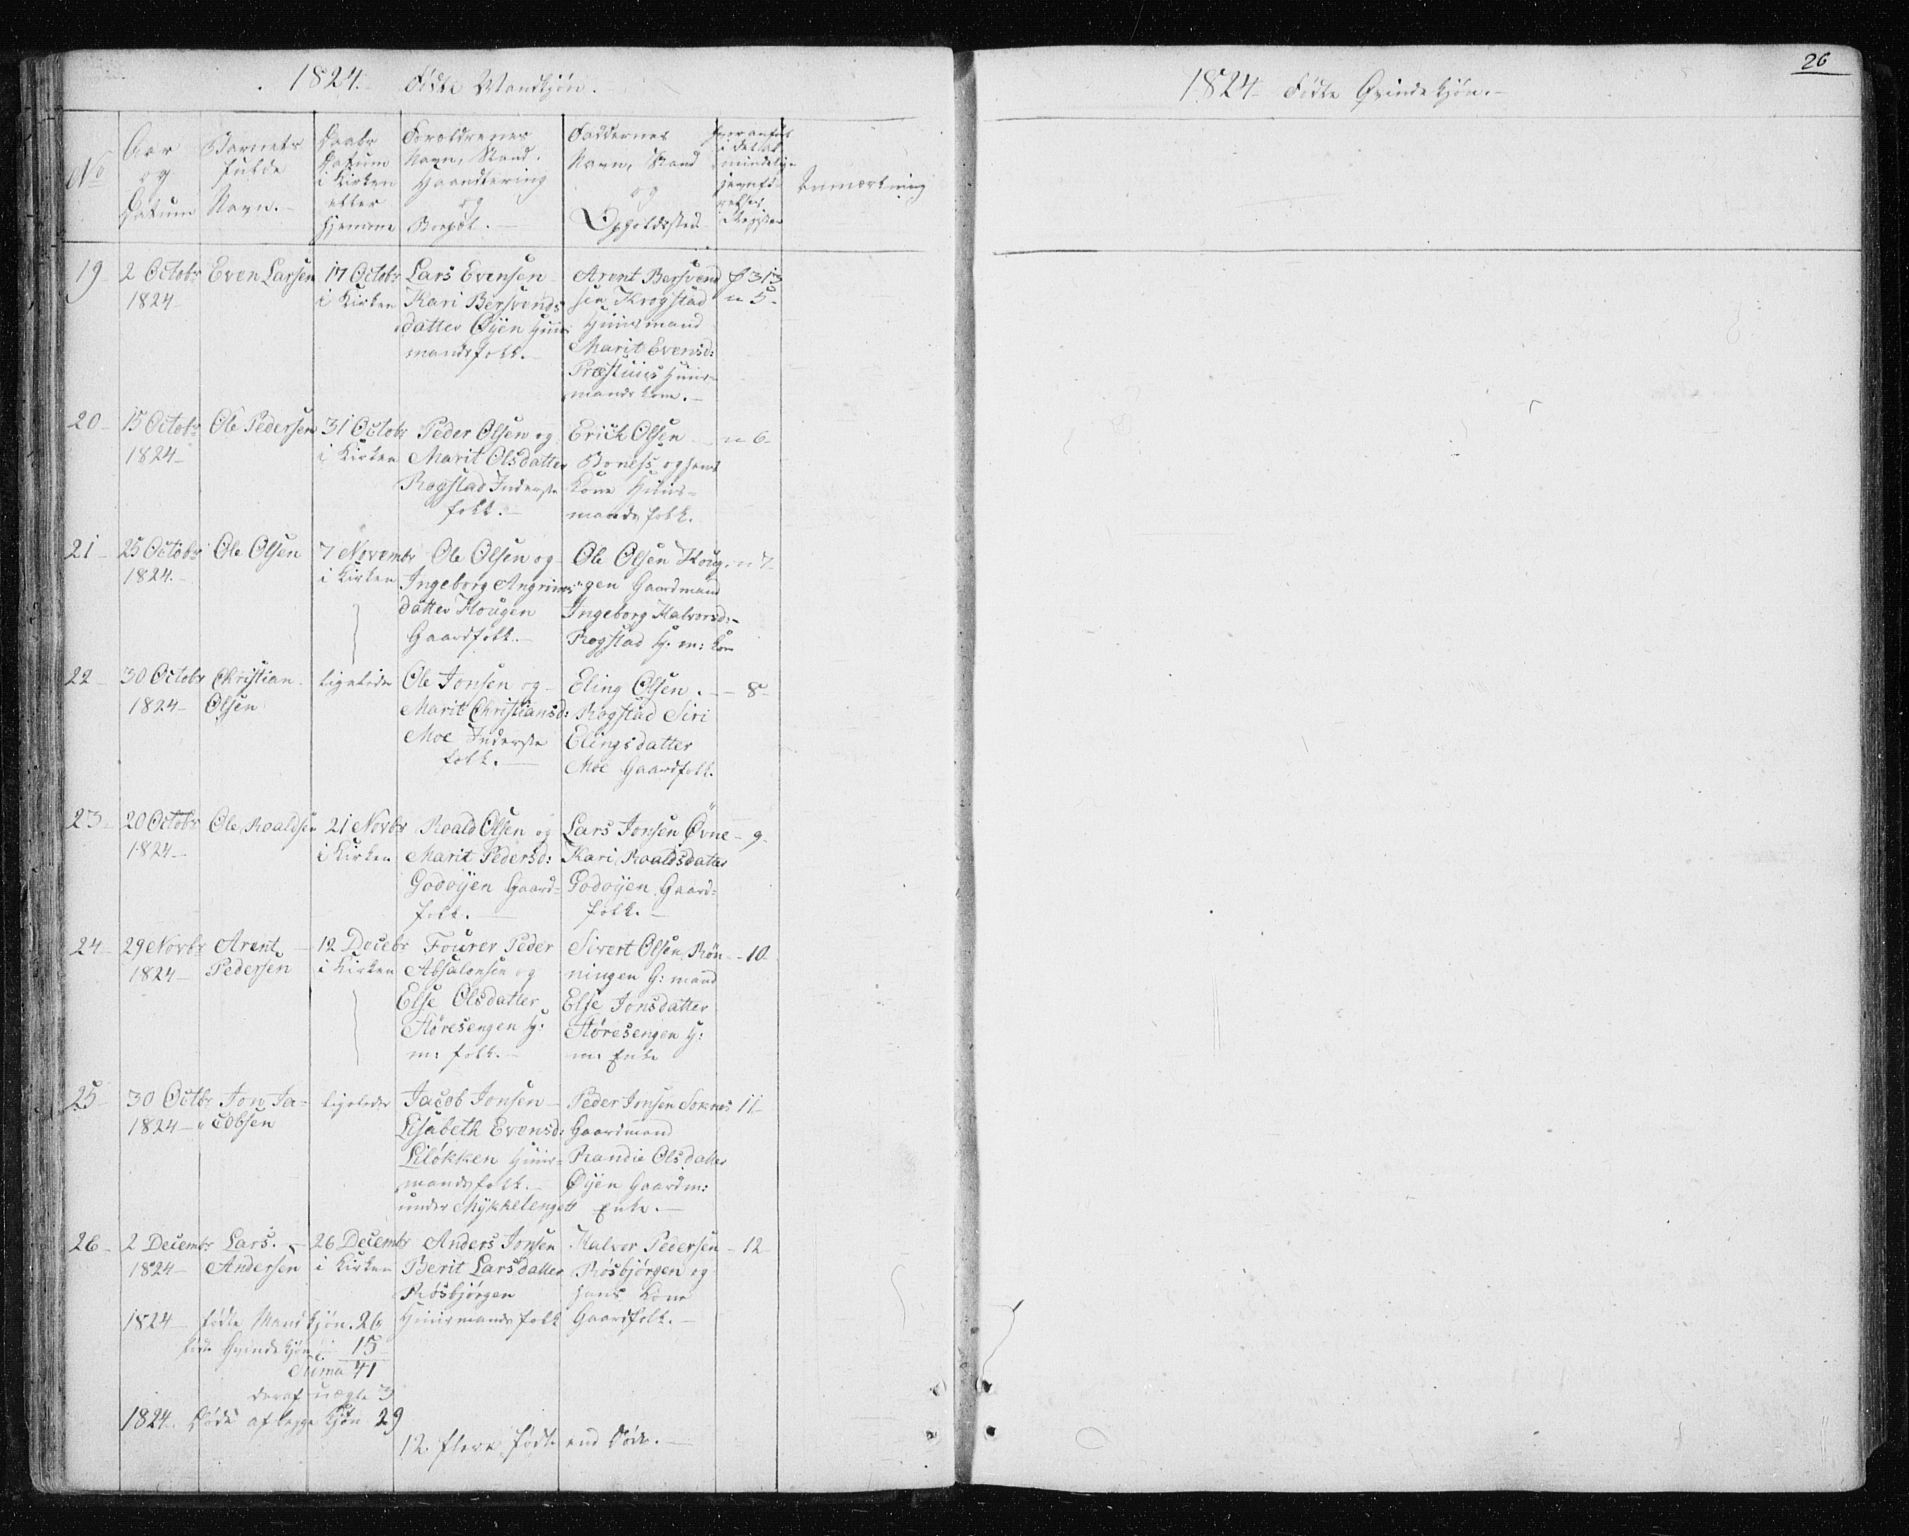 1824. Fødte Mandkjøn.
No
Aar
og
Datum
Barnets
fulde
Navn.
Daabs
Datum
i Kirken
eller
hjemme
Forældrenes
Navn, Stand,
Haandtering
og
Bopæl.
Faddernes
Navn, Stand
og
Opholdssted
i det al-
mindelige
jevnfø-
relses
Register
Anmærkning
19
2 Octobr
1824
Even Larsen
17 Octobr
i Kirken
Lars Evensen
Kari Bersvends
datter Øyen Huus
mandsfolk.
Arent Bersvend
sen Krogstad
Huusmand
Marit Evensd:
Præstuus Huus-
mands Kone.
f 313
n 5-
20-
15 Octobr
1824-
Ole Pedersen
31 Octobr
i Kirken
Peder Olsen og
Marit Olsdatter
Rogstad Inderste
folk.
Erick Olsen
Boness og hans
Kone Huus-
mandsfolk.
n 6-
21-
25 Octobr
1824.-
Ole Olsen
7 Novembr
i Kirken
Ole Olsen og
Ingeborg Angrims
datter Hougen
Gaardfolk.
Ole Olsen Houg-
gen Gaardmand
Ingeborg Halvorsd:
Rogstad H. m: Kone
n 7-
22
30 Octobr
1824-
Christian
Olsen
ligeledes
Ole Jonsen og
Marit Christiansd:
Moe Inderste
folk.
Eling Olsen.
Rogstad Siri
Elingsdatter
Moe Gaardfolk.
- 8-
23-
20 Octobr
1824-
Ole Roaldsen
21 Novbr
i Kirken
Roald Olsen og
Marit Pedersd:
Godøyen Gaard-
folk.
Lars Jonsen Øvne
Kari Roaldsdatter
Godøyen Gaard-
folk.
- 9-
24-
29 Novbr
1824-
Arent
Pedersen
12 Decebr
i Kirken
Fourer Peder
Absalonsen og
Else Olsdatter
Støresengen H:
m: folk.
Sivert Olsen Røn-
ningen G: mand
Else Jonsdatter
Støresengen H:
m: Enke
- 10-
25-
30 Octbr
1824-
Jon Ja-
cobsen
ligeledes
Jacob Jonsen
Lisabeth Evensd:
Liløkken Huus-
mandsfolk.
under Mykkelenget
Peder Jonsen Soknes
Gaardmand
Randie Olsdatter
Øyen Gaardm:
Enke.
11-
26-
2 Decembr
1824-
Lars.
Andersen
26 Decembr
i Kirken
Anders Jonsen
Berit Larsdatter
Røsbjørgen
Huusmandsfolk
Halvor Pedersen
Røsbjørgen og
hans Kone
Gaardfolk.
- 12-
1824- fødte Mandkjøn. 26
fødte Qvindekjøn 15
Suma 41
deraf uægte 3
1824. Døde af begge Kjøn 29
12 flere fødte end Døde.
26
1824- Fødte Qvindekjøn.